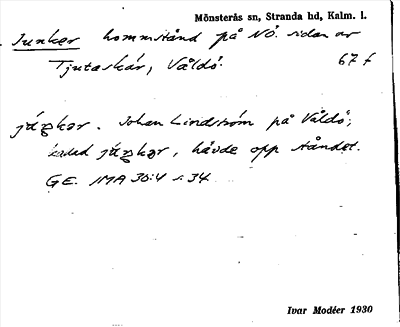 Mönsterås sn, Stranda hd, Kalm. l.
Junker kommstånd på NÖ. sidan av
Tjutaskär, Våldö. 67 f
Johan Lindström på Våldö;
kallad håvde opp ståndet.
GE. IMA 30:4 s. 34
Ivar Modéer 1930